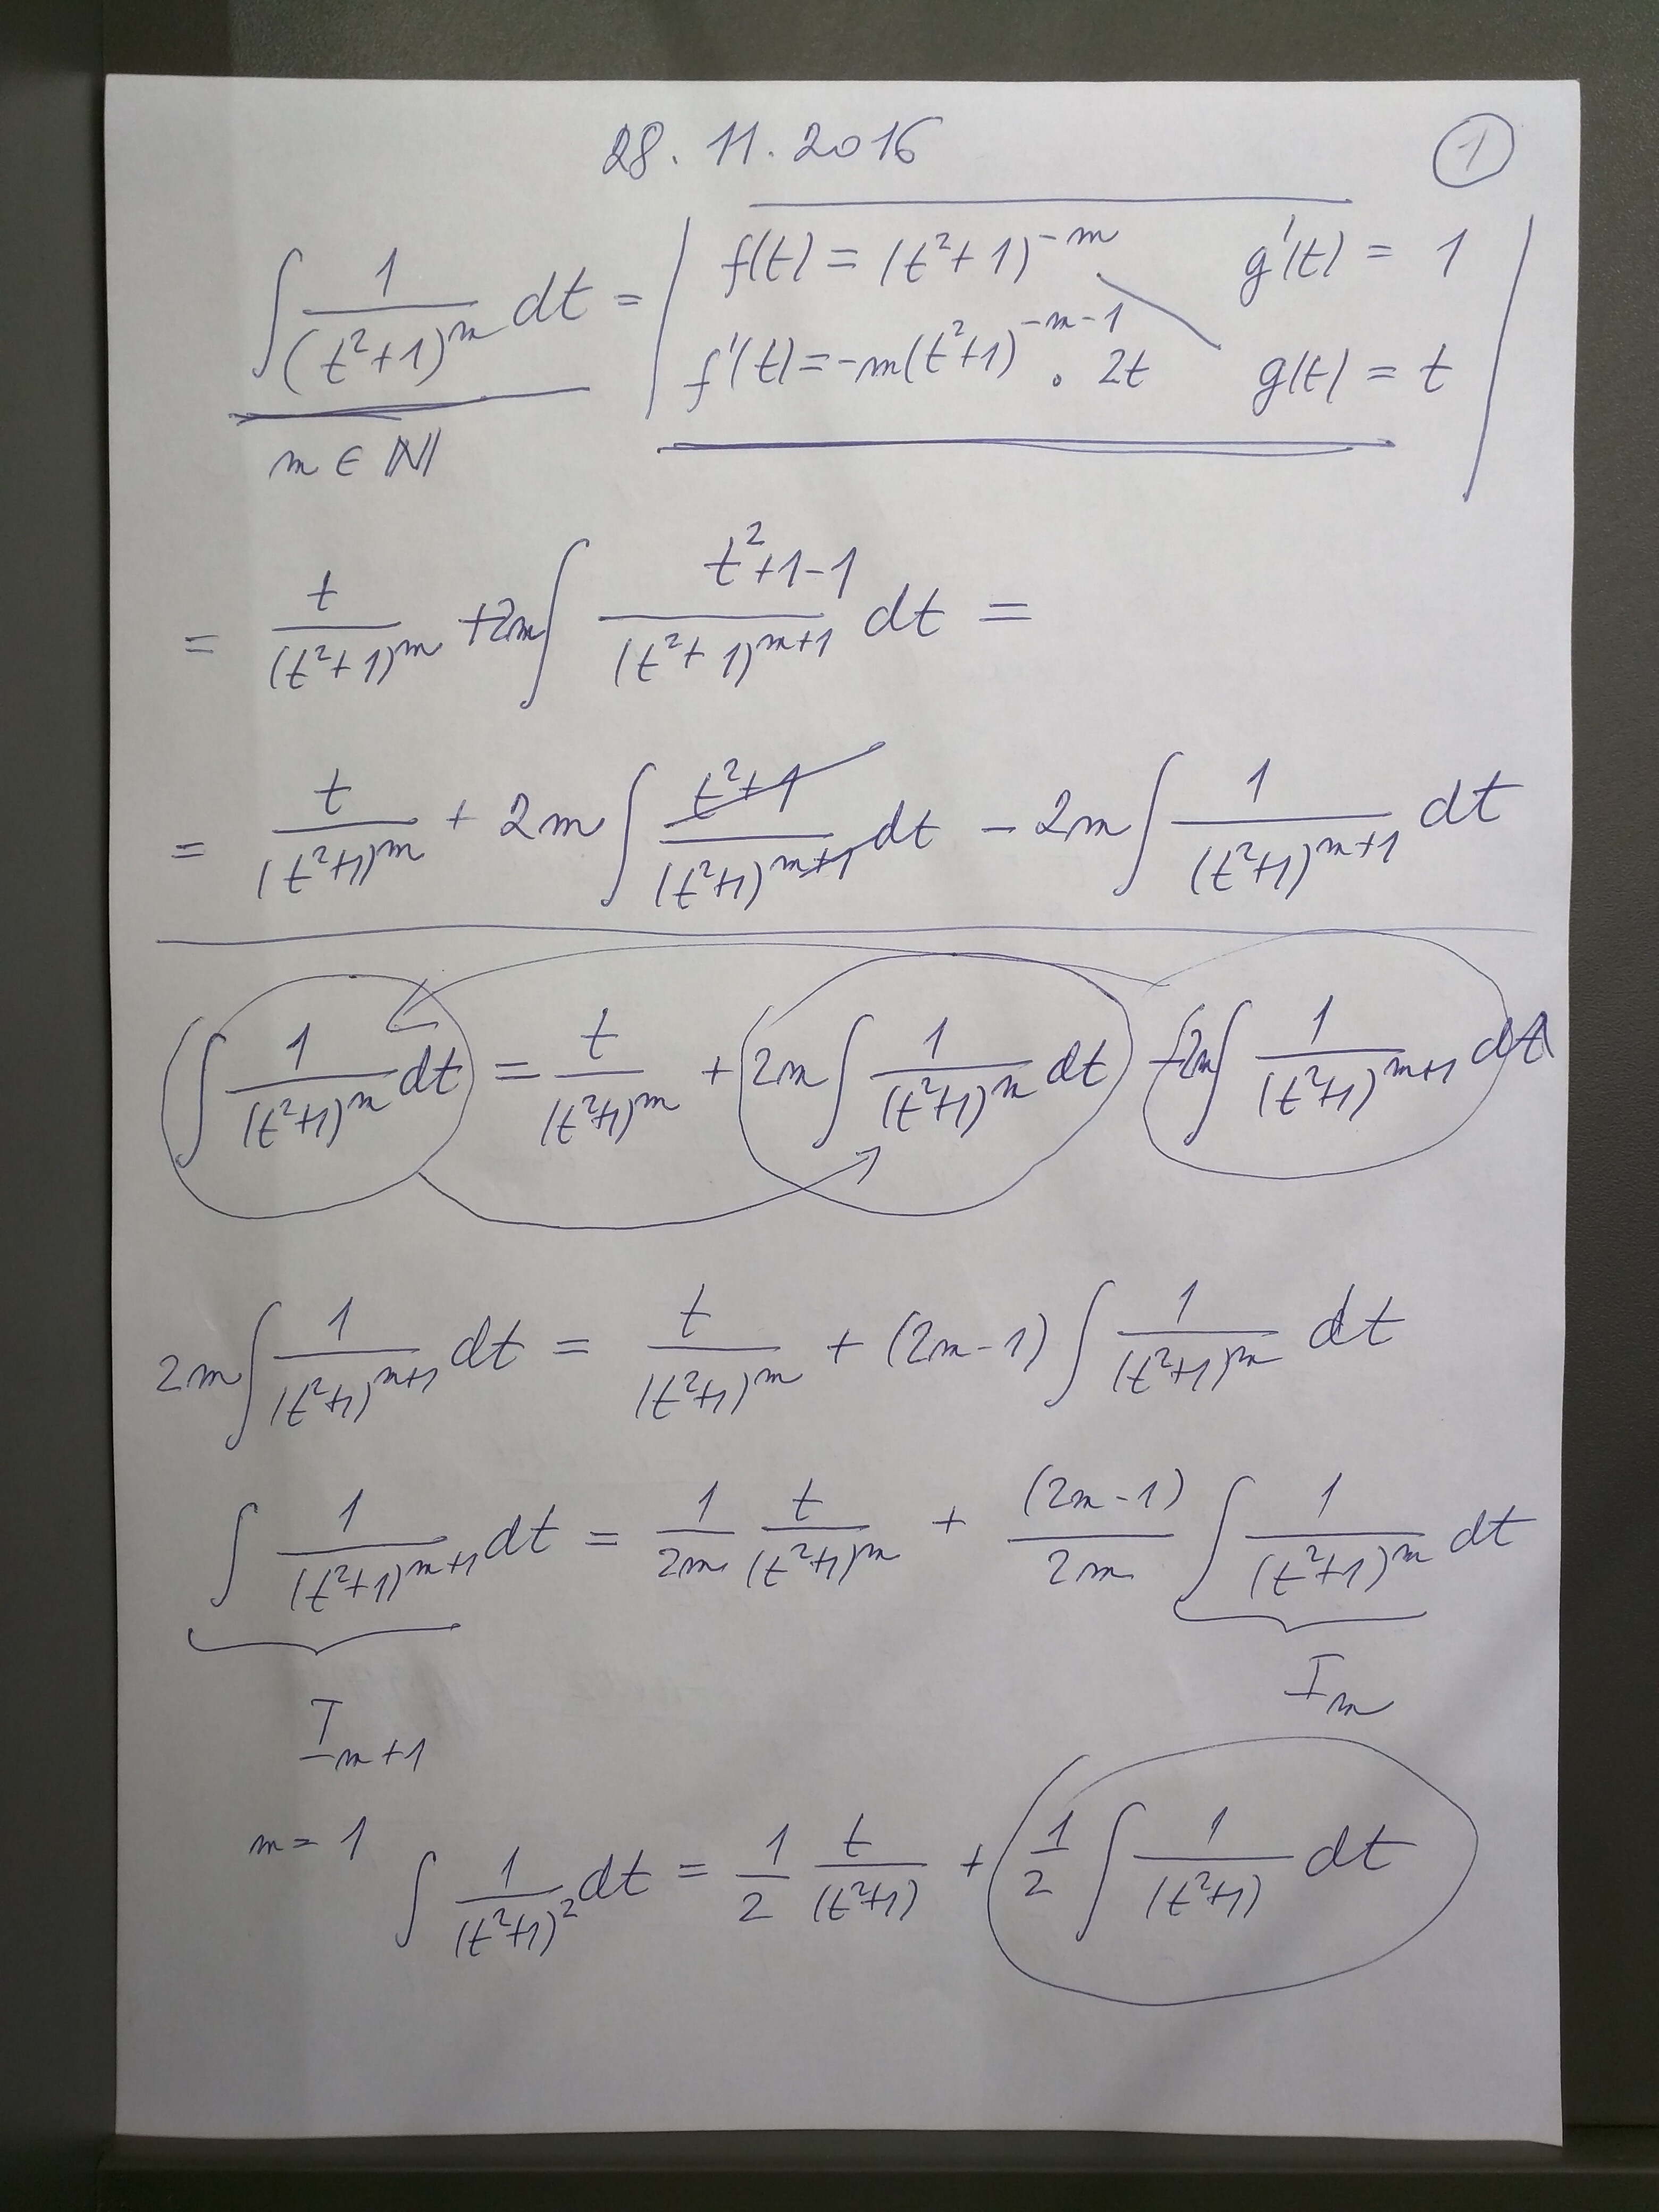 28. 11. 2016
①
∫ 1/(t²+1)^m dt = | f(t) = (t²+1)^{-m} g'(t) = 1 |
f'(t) = -m(t²+1)^{-m-1} · 2t g(t) = t
m ∈ ℕ
= t/(t²+1)^m + 2m ∫ (t²+1-1)/(t²+1)^{m+1} dt =
= t/(t²+1)^m + 2m ∫ (t²+1)/(t²+1)^{m+1} dt - 2m ∫ 1/(t²+1)^{m+1} dt
∫ 1/(t²+1)^m dt = t/(t²+1)^m + 2m ∫ 1/(t²+1)^m dt - 2m ∫ 1/(t²+1)^{m+1} dt
2m ∫ 1/(t²+1)^{m+1} dt = t/(t²+1)^m + (2m-1) ∫ 1/(t²+1)^m dt
∫ 1/(t²+1)^{m+1} dt = 1/2m t/(t²+1)^m + (2m-1)/2m ∫ 1/(t²+1)^m dt
I_{m+1} I_m
m = 1 ∫ 1/(t²+1)² dt = 1/2 t/(t²+1) + 1/2 ∫ 1/(t²+1) dt